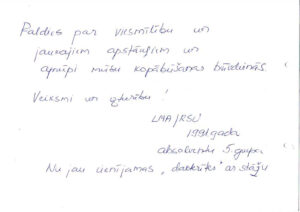 Paldies par viesmīlību un
jaukajiem apstākļiem un
mūsu kopābūšanas
Veiksmi un izturību!
LMA/RSU
1991 gada
absolventu 5. grupa
Nu jau cienījamas, ar stāžu